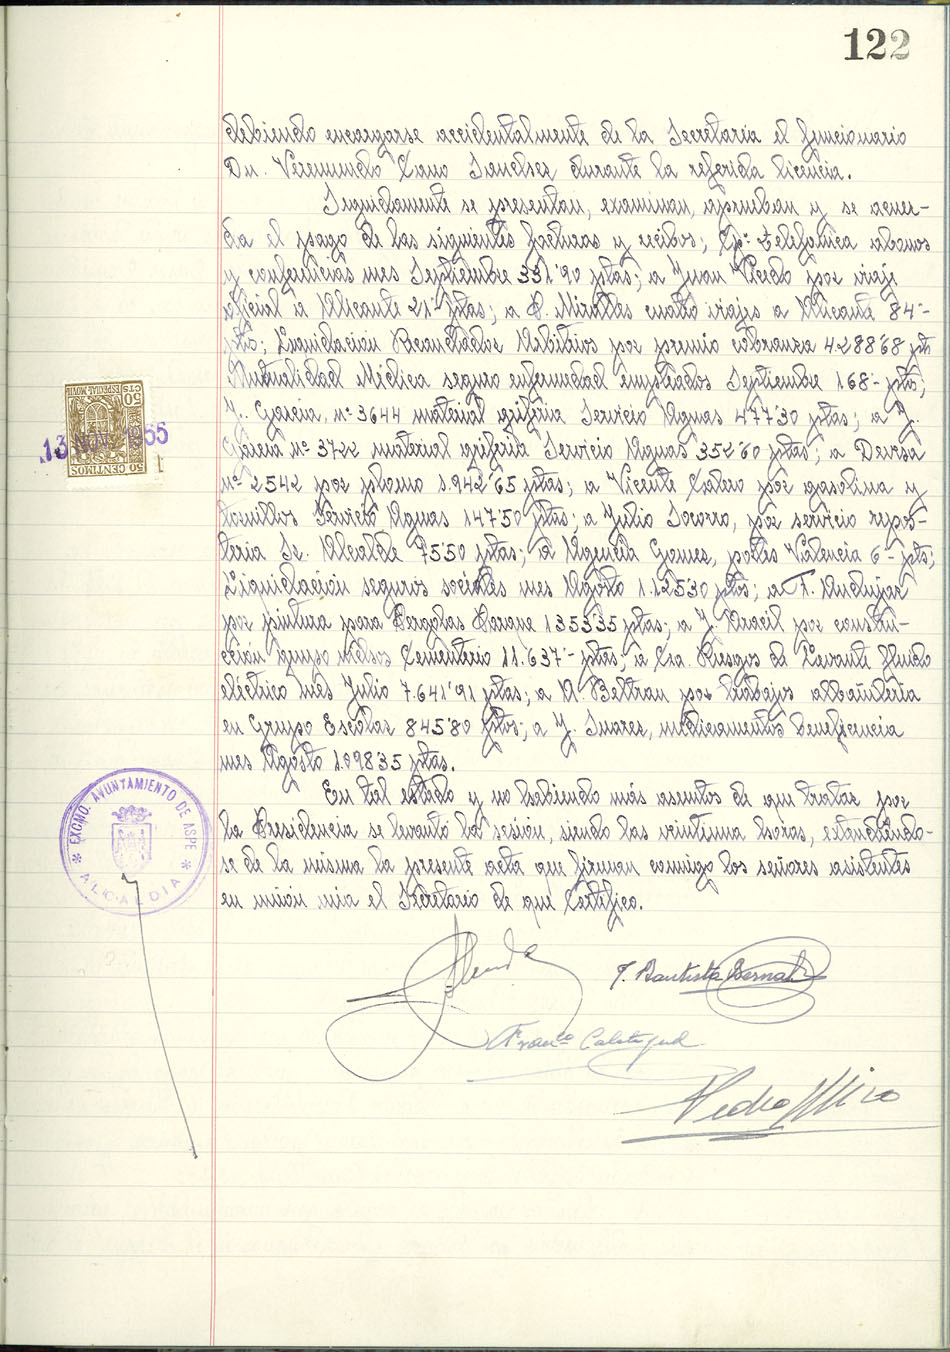 122
debiendo encargarse accidentalmente de la Secretaría el funcionario
Dn. Veremundo Cano Sanchez durante la referida licencia.
Seguidamente se presentan, examinan, aprueban y se acuer-
da el pago de las siguientes facturas y recibos; Cpª Telefonica abonos
y conferencias mes Septiembre 331'90 ptas; a Juan Picedo por viaje
oficial a Alicante 21'- ptas; a P. Miralles cuatro viajes a Alicante 84'-
ptas; Liquidación Recaudador Arbitrios por premio cobranza 4.288'68 pts
Mutualidad Médica seguro enfermedad empleados Septiembre 168'- ptas;
J. Garcia, nº 3644 material grifería Servicio Aguas 477'30 ptas; a J.
Garcia nº 3722 material grifería Servicio Aguas 352'60 ptas; a Devesa
nº 2542 por plomo 1.942'65 ptas; a Vicente Calero por gasolina y
tornillos Servicio Aguas 147'50 ptas; a Julio Socorro, por servicio repos-
teria Sr. Alcalde 75'50 ptas; a Agencia Gomez, portes Valencia 6'- pts;
Liquidación seguros sociales mes Agosto 1.125'30 ptas; a F. Andujar
por pintura para Pergolas Parque 1353'35 ptas; a J. Pracil por construc-
ción grupo nichos Cementerio 11.637'- ptas; a Cia. Riegos de Levante fluido
eléctrico mes Julio 7.641'91 ptas; a A. Beltran por trabajos albañilería
en Grupo Escolar 845'80 ptas; a J. Suarez, medicamentos beneficencia
mes Agosto 1.098'35 ptas.
En tal estado y no habiendo más asuntos de que tratar por
la Presidencia se levantó la sesión, siendo las veintiuna horas, extendiendo-
se de la misma la presente acta que firman conmigo los señores asistentes
en unión mia el Secretario de que Certifico.
J. Bautista Bernal
Franco Calatayud
Pedro Miro
ESPECIAL MOVIL
50 CTS
50 CENTIMOS
13 NOV. 1955
EXCMO. AYUNTAMIENTO DE ASPE
* ALCALDIA *